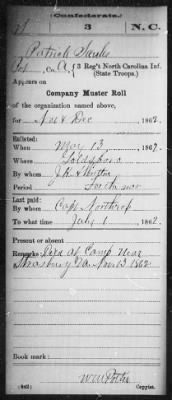 Confederate.
3
N.C.
Patrick
Pvt, Co. A, 3 Reg't North Carolina Inf.
(State Troops.)
Appears on
Company Muster Roll
of the organization named above,
for Nov & Dec, 1862.
Enlisted:
When May 13, 1862.
Where Goldsboro
By whom J.R.
Period For the war
Last paid:
By whom Capt. Northrop
To what time July 1, 1862.
Present or absent
Remarks: Died at Camp Near
Strasburg Va Nov 13 1862
Book mark:
(642)
Copyist.